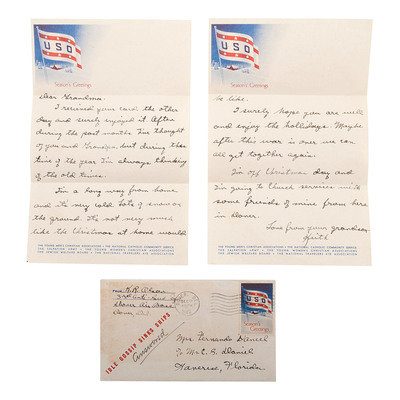 USO
Season's Greetings
Dear Grandma:
I received your card the other
day and surely enjoyed it. Often
during the past months I've thought
of you and Grandpa, but during this
time of the year I'm always thinking
of the old times.
I'm a long way from home,
and it's very cold. Lots of snow on
the ground. It's not very much
like the Christmas at home would
THE YOUNG MEN'S CHRISTIAN ASSOCIATIONS • THE NATIONAL CATHOLIC COMMUNITY SERVICE
THE SALVATION ARMY • THE YOUNG WOMEN'S CHRISTIAN ASSOCIATIONS
THE JEWISH WELFARE BOARD • THE NATIONAL TRAVELERS AID ASSOCIATION
USO
Season's Greetings
be like.
I surely hope you are well
and enjoy the hollidays. Maybe
after this war is over we can
all get together again.
I'm off Christmas day and
I'm going to Church services with
some friends of mine from here
in
Love from your grandson
THE YOUNG MEN'S CHRISTIAN ASSOCIATIONS • THE NATIONAL CATHOLIC COMMUNITY SERVICE
THE SALVATION ARMY • THE YOUNG WOMEN'S CHRISTIAN ASSOCIATIONS
THE JEWISH WELFARE BOARD • THE NATIONAL TRAVELERS AID ASSOCIATION
USO
Season's
Greetings
IDLE GOSSIP SINKS SHIPS
Answered
Mrs Fernando Daniel
Daniel
Florida